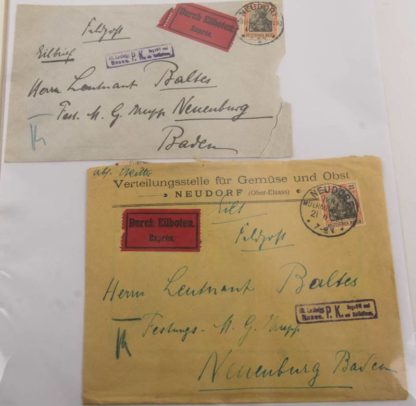 Feldpost
Durch Eilboten.
Expres.
NEUDORF
Eilbrief
P. K.
Herrn Leutnant Baltes
Fest. M. G. Trupp Neuenburg
Baden
Verteilungsstelle für Gemüse und Obst
NEUDORF (Ober-Elsass)
NEUDORF
21
7-8V
Durch Eilboten.
Expres.
Eilt
Feldpost
Herrn Leutnant Baltes
P. K.
Festungs- M. G. Trupp
Neuenburg Baden